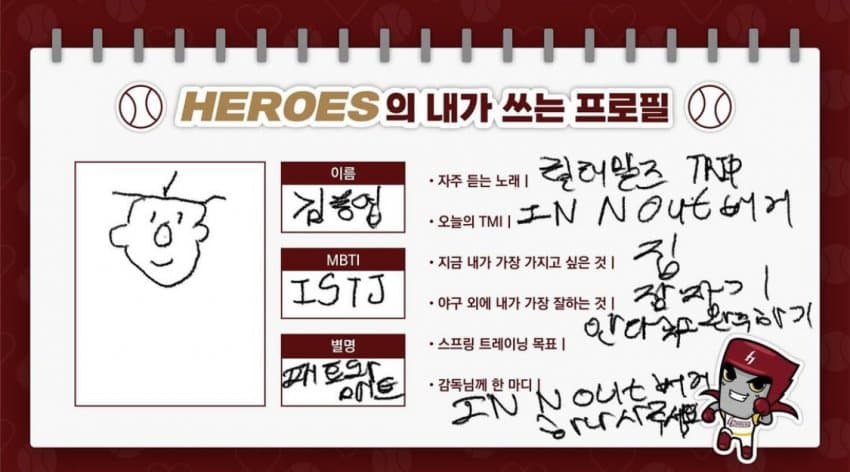 HEROES의 내가 쓰는 프로필
이름
김동엽
MBTI
ISTJ
별명
매트
• 자주 듣는 노래 | 릴러말즈 TRIP
• 오늘의 TMI | IN N OUt 버거
• 지금 내가 가장 가지고 싶은 것 | 집
• 야구 외에 내가 가장 잘하는 것 | 잠자기
• 스프링 트레이닝 목표 | 안다치고 완주하기
• 감독님께 한 마디 | IN N OUt 버거
하나 사주세요